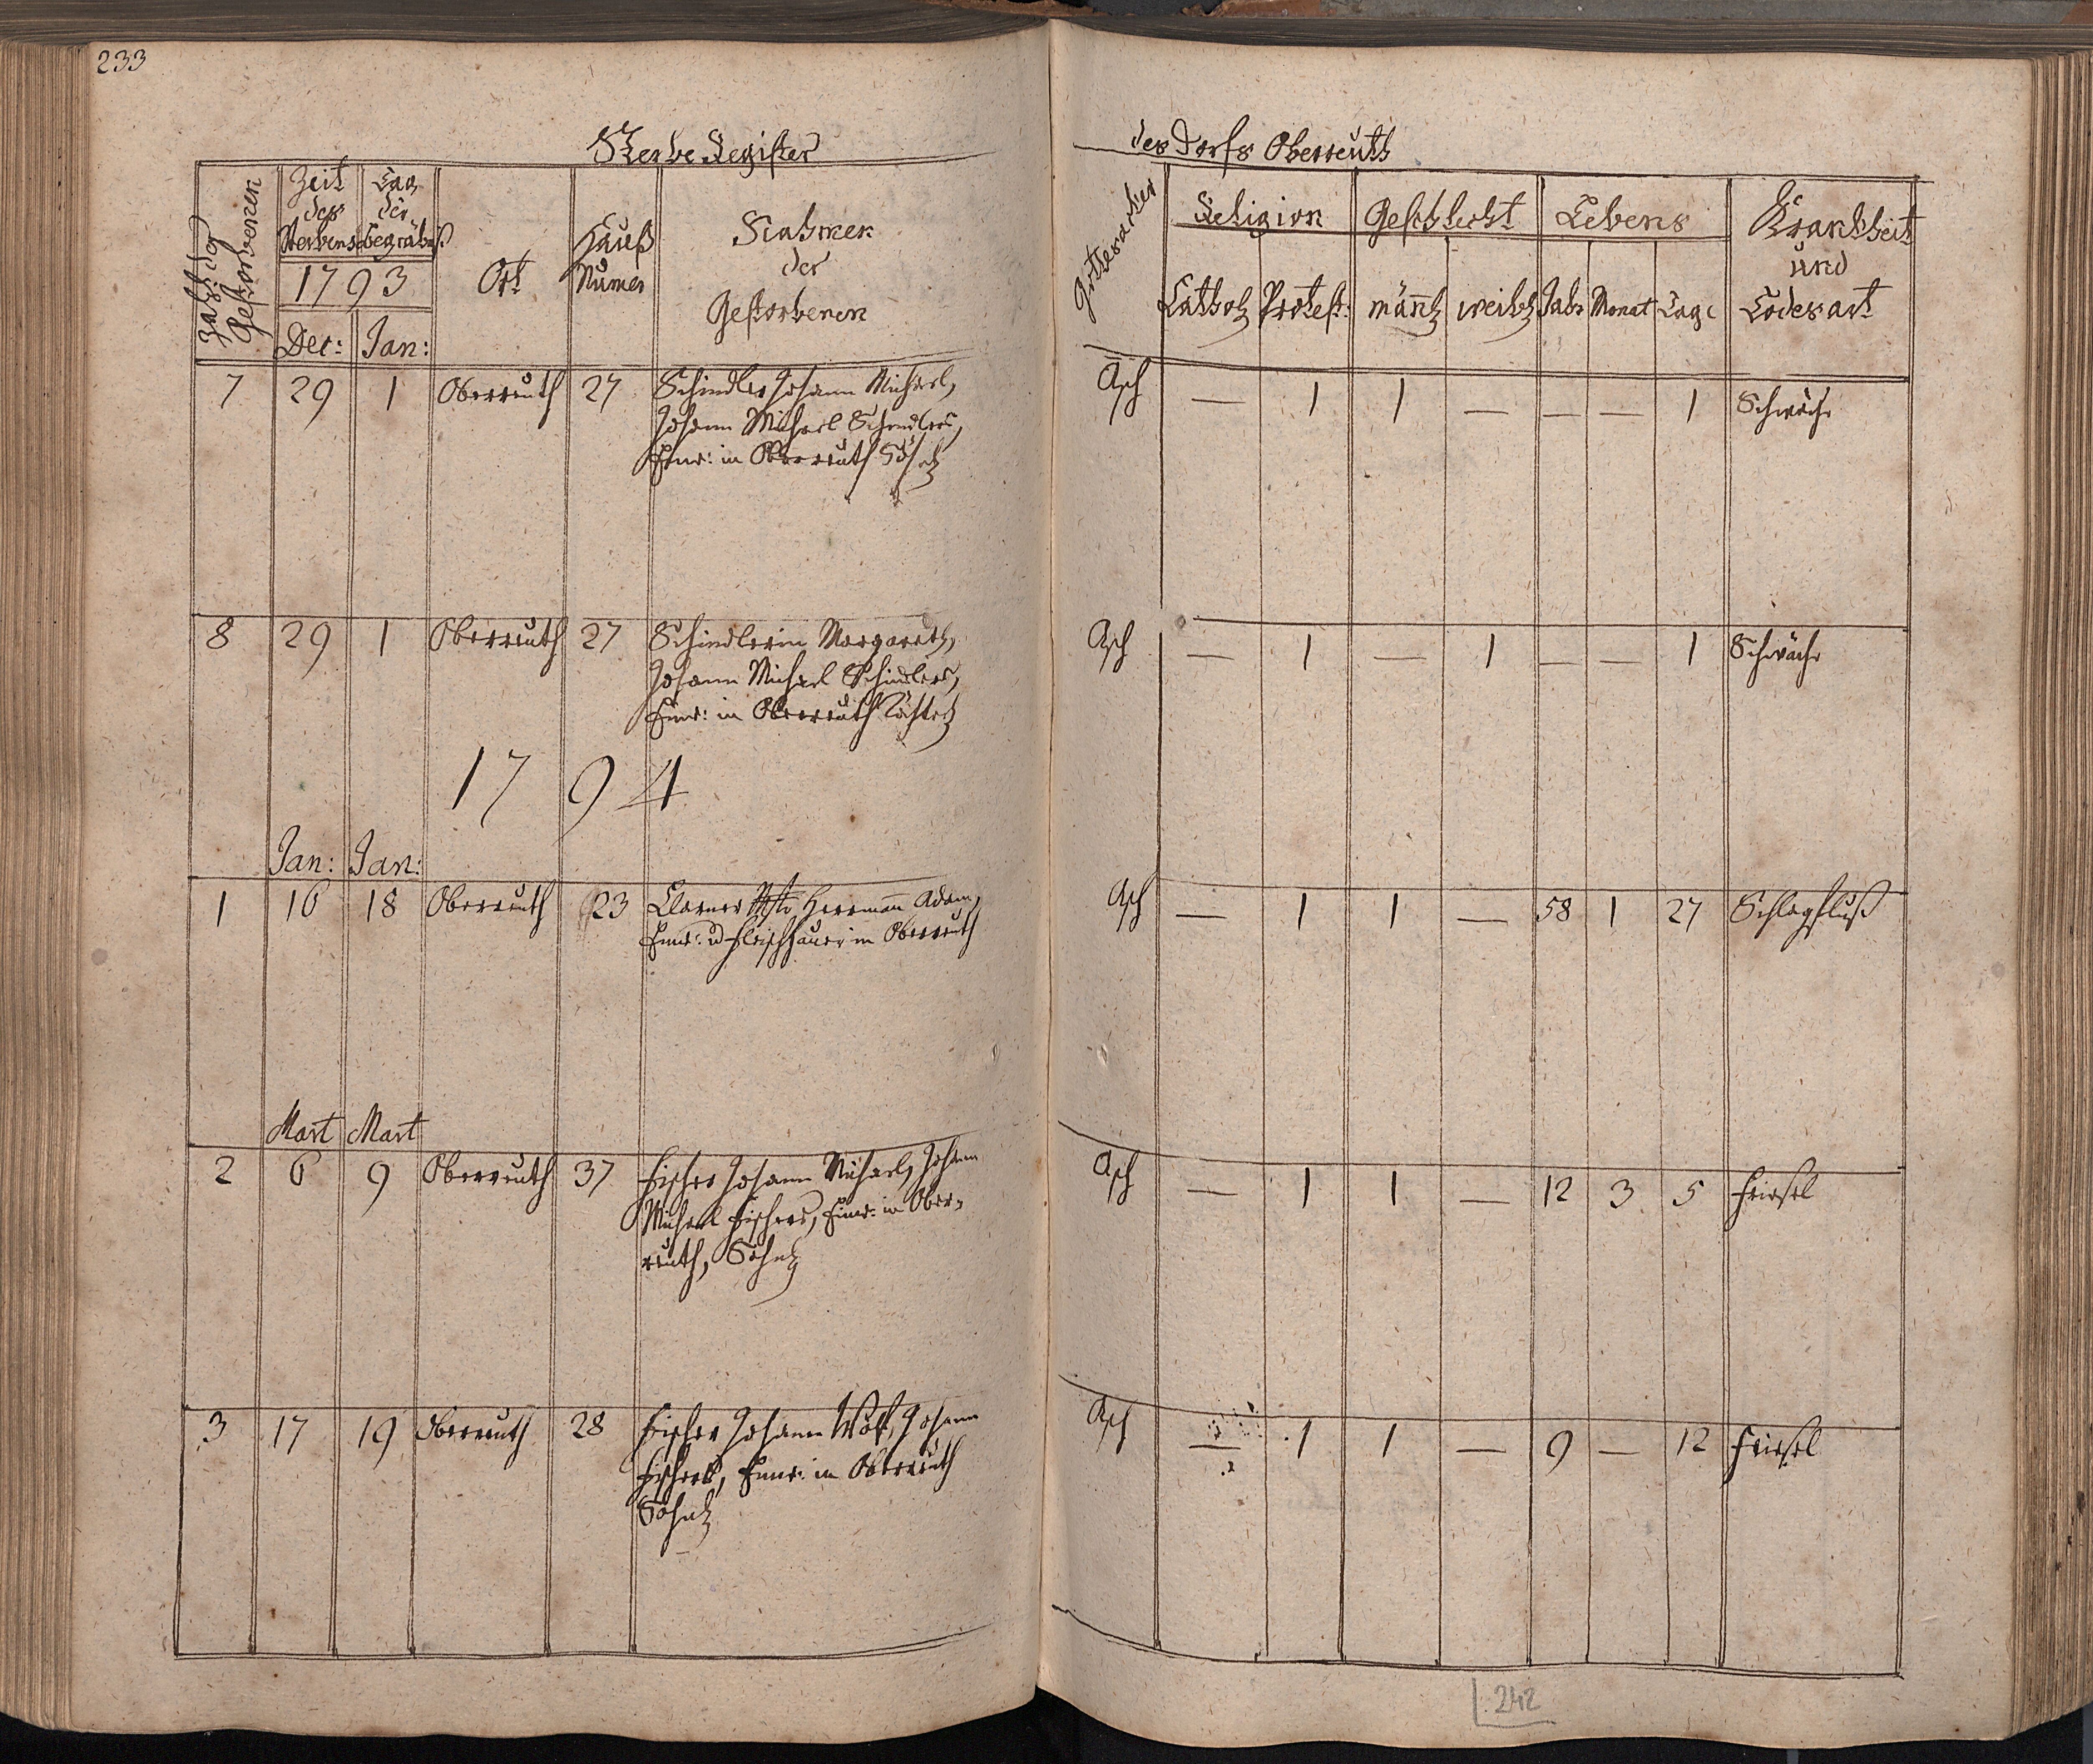 233
Sterbe Register
des Dorfs Oberreuth
Zahl der Gestorbenen
Zeit des Sterbens
Tag der Begräbniß
1793
Dec: Jan:
Ort
Hauß Numer
Nahmen der Gestorbenen
Gottesacker
Religion
Cathol Protest:
Geschlecht
männl weibl
Lebens
Jahr Monat Tage
Krankheit und Todesart
7 29 1 Oberreuth 27 Schindler Johann Michael, Asch — 1 1 — — — 1 Schwäche
Johann Michael Schindlers,
Einw: in Oberreuth Söhnl
8 29 1 Oberreuth 27 Schindlerin Margareth, Asch — 1 — 1 — — 1 Schwäche
Johann Michael Schindlers,
Einw: in Oberreuth Töchterl
1794
Jan: Jan:
1 16 18 Oberreuth 23 Clarner Mstr Herrmann Adam, Asch — 1 1 — 58 1 27 Schlagfluß
Einw: u Fleischhauer in Oberreuth
Mart Mart
2 6 9 Oberreuth 37 Fischer Johann Michael, Johann Asch — 1 1 — 12 3 5 Friesel
Michael Fischers, Einw: in Ober-
reuth, Söhnl
3 17 19 Oberreuth 28 Fischer Johann Wolf, Johann Asch — 1 1 — 9 — 12 Friesel
Fischers, Einw: in Oberreuth
Söhnl
242